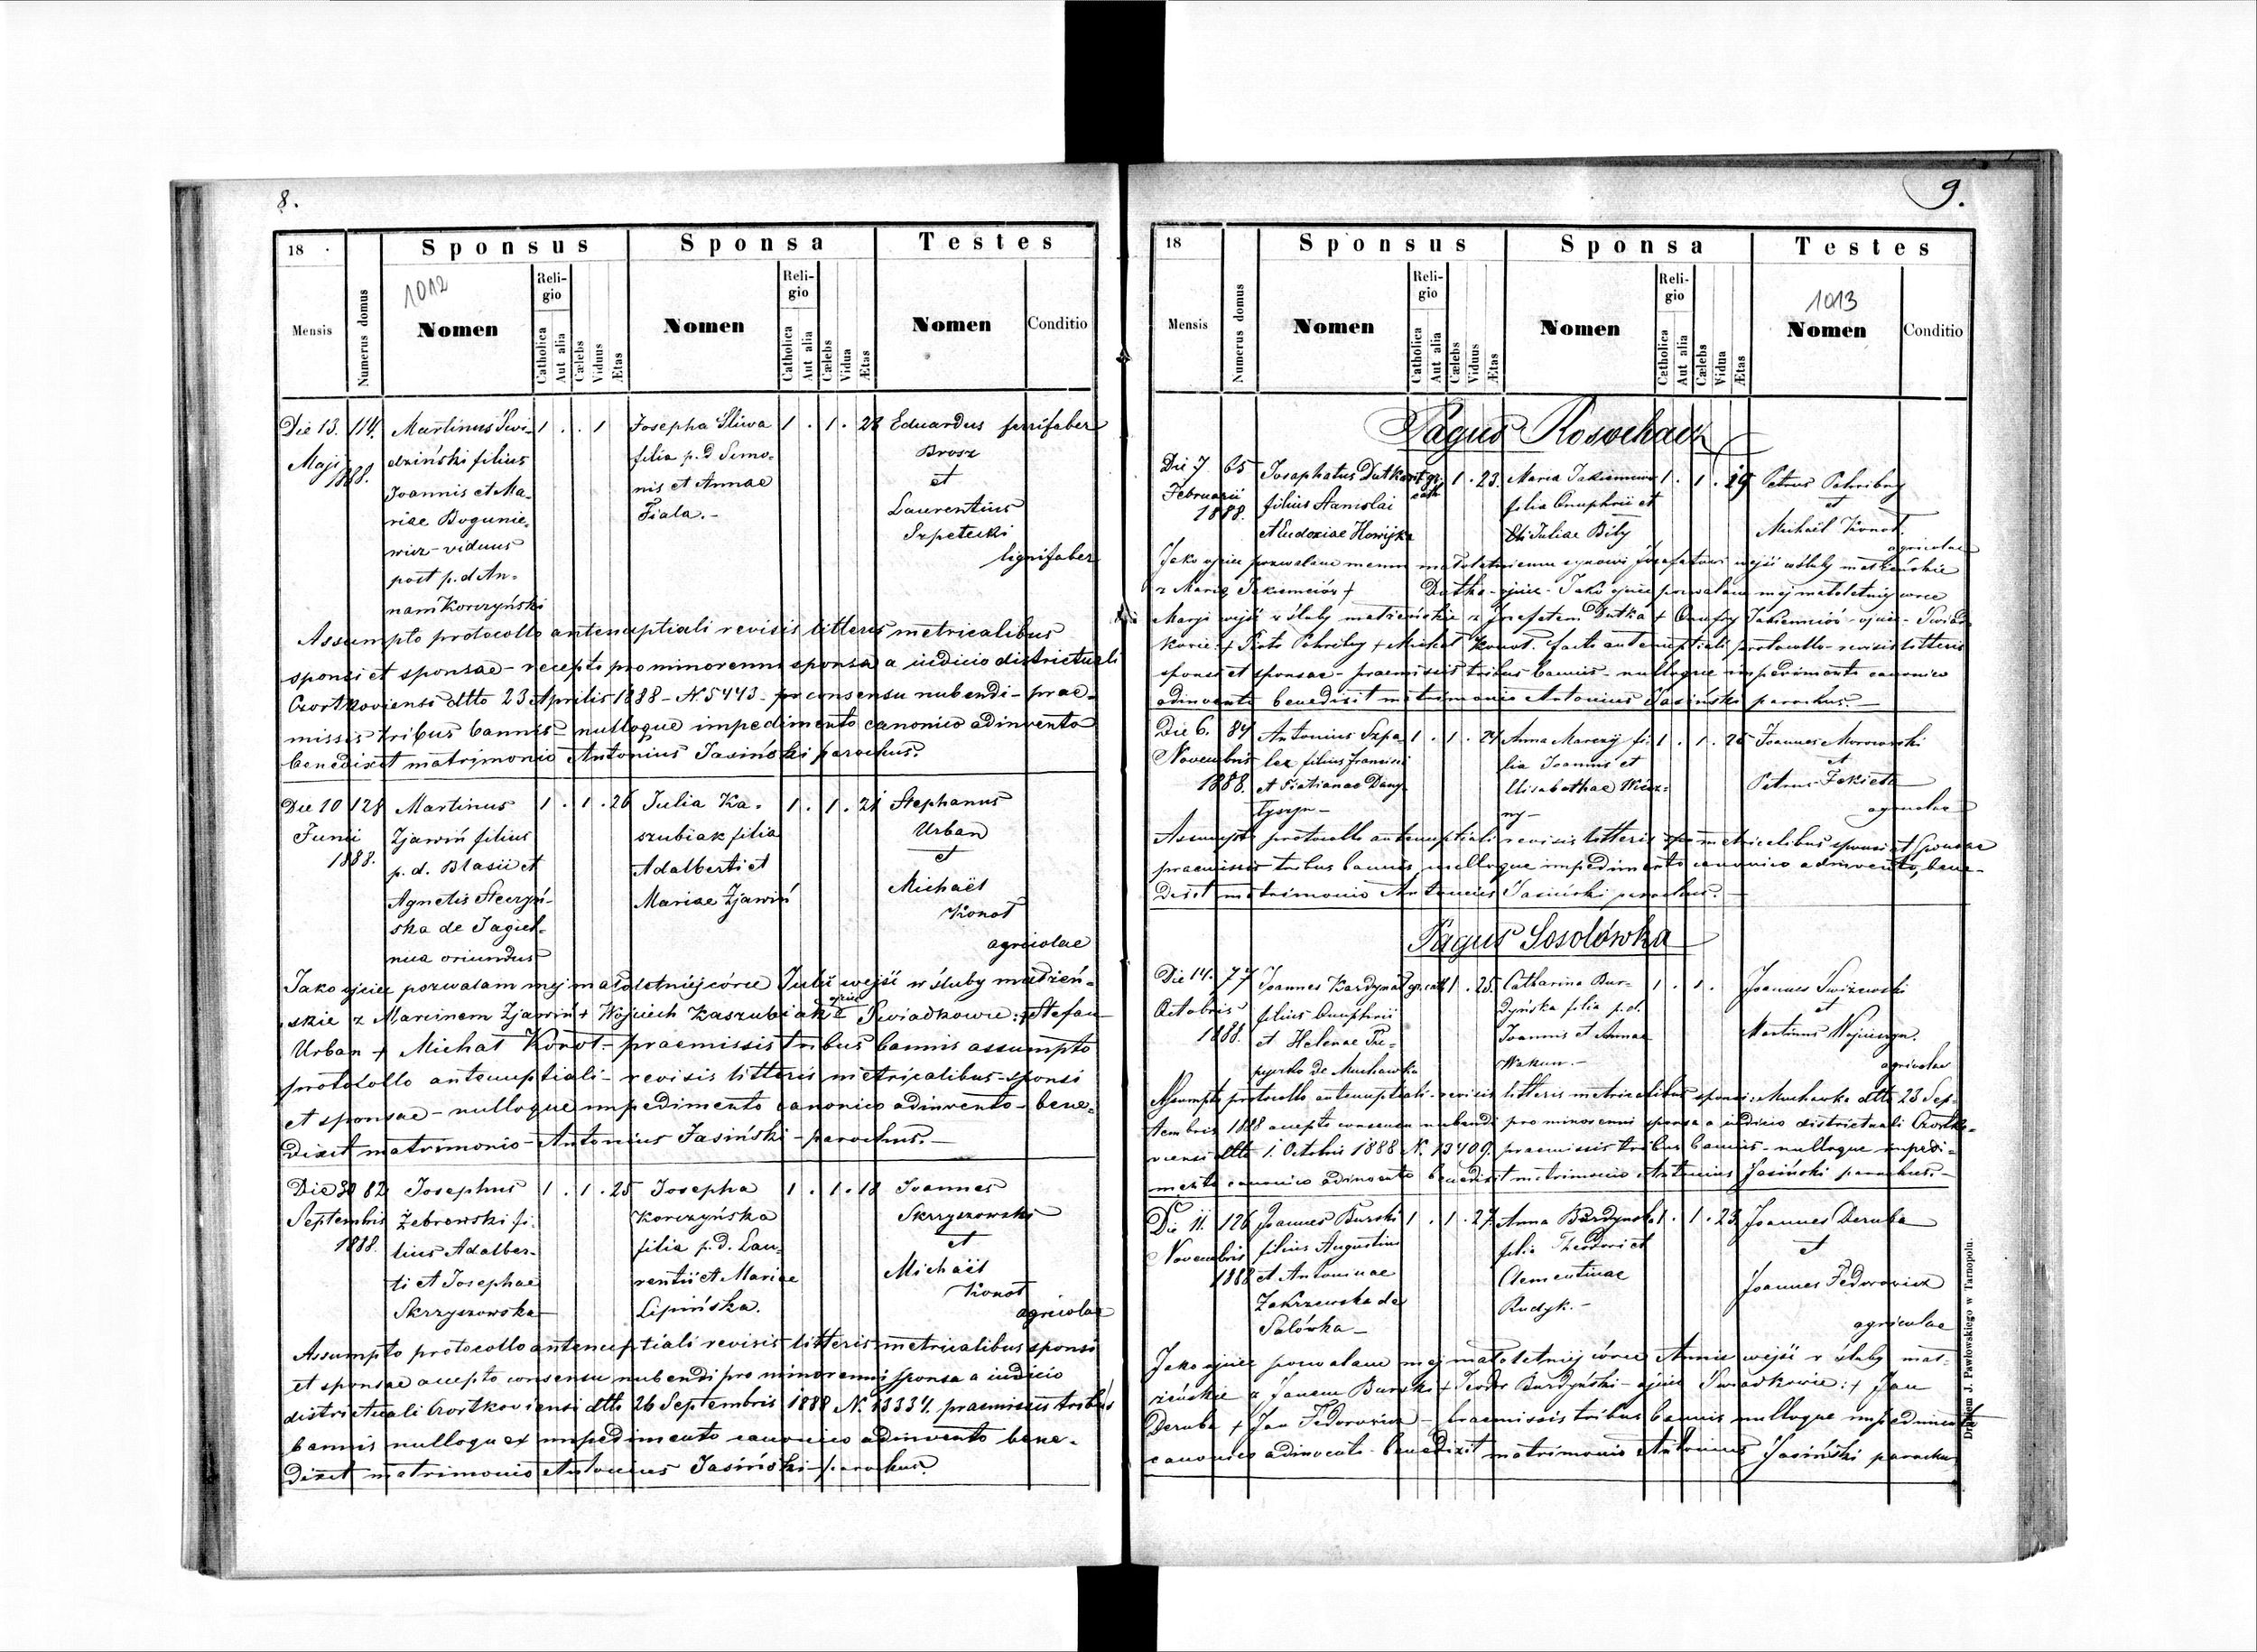 8.
18
Sponsus
Sponsa
Testes
1012
Mensis
Numerus domus
Nomen
Religio
Catholica
Aut alia
Cælebs
Viduus
Ætas
Nomen
Religio
Catholica
Aut alia
Cælebs
Vidua
Ætas
Nomen
Conditio
Die 13. 114. Martinus Świ- 1 . . 1 Josepha Śliwa 1 . 1 . 23 Eduardus ferrifaber
Maji dziński filius filia p.d Simo- Brosz
1888. Joannis et Ma- nis et Annae et
riae Bogunie- Fiala.- Laurentius
wicz-viduus Szpetecki
post p.d An- lignifaber
nam Korczyński
Assumpto protocollo antenuptiali revisis litteris metricalibus
sponsi et sponsae - recepto pro minorenni sponsa a iudicio districtuali
Czortkoviensi dtto 23 Aprilis 1888 - N. 5443 - consensu nubendi - prae-
missis tribus bannis - nulloque impedimento canonico adinvento
benedixit matrimonio Antonius Jasiński parochus.
Die 10 128 Martinus 1 . 1 . 26 Julia Ka- 1 . 1 . 21 Stephanus
Junii Zjawiń filius szubiak filia Urban
1888. p. d. Blasii et Adalberti et et
Agnetis Steczyń- Mariae Zjawiń Michaël
ska de Jagiel- Konot
nica oriundus agricolae
Jako ojciec pozwalam mej małoletniej córce Julii wejść w śluby małżeń-
skie z Marcinem Zjawiń + Wojciech Kaszubiak ojciec Świadkowie: + Stefan
Urban + Michał Konot - praemissis tribus bannis assumpto
protocollo antenuptiali - revisis litteris metricalibus - sponsi
et sponsae - nulloque impedimento canonico adinvento - bene-
dixit matrimonio - Antonius Jasiński - parochus.-
Die 30 82 Josephus 1 . 1 . 25 Josepha 1 . 1 . 18 Joannes
Septembris Żebrowski fi- Korczyńska Skrzyszowski
1888. lius Adalber- filia p. d. Lau- et
ti et Josephae rentii et Mariae Michaël
Skrzyszowska Lipińska. Konot
agricolae
Assumpto protocollo antenuptiali revisis litteris metricalibus sponsi
et sponsae accepto consensu nubendi pro minorenni sponsa a iudicio
districtuali Czortkoviensi dtto 26 Septembris 1888 N. 13334. praemissis tribus
bannis nulloque impedimento canonico adinvento bene-
dixit matrimonio Antonius Jasiński - parochus.
9.
18
Sponsus
Sponsa
Testes
1013
Mensis
Numerus domus
Nomen
Religio
Catholica
Aut alia
Cælebs
Viduus
Ætas
Nomen
Religio
Catholica
Aut alia
Cælebs
Vidua
Ætas
Nomen
Conditio
Pagus Rosochacz
Die 7 65 Josaphatus Dutka rit gr. 1 . 23. Maria Jakiemciów 1 . 1 . 19 Petrus Pohribny
Februarii filius Stanislai cath filia Onuphrii et et
1888. et Eudoxiae Howijka Juliae Biły Michaël Konot.
agricolae
Jako ojciec pozwalam memu małoletniemu synowi Jozafatowi wejść w śluby małżeńskie
z Maryą Jakiemciów + Dutka - ojciec - Jako ojciec pozwalam mej małoletniej córce
Maryi wejść w śluby małżeńskie z Jozefatem Dutka + Onufry Jakiemciów - ojciec - Świad-
kowie: + Piotr Pohribny + Michał Konot. facto antenuptiali protocollo - revisis litteris
sponsi et sponsae - praemissis tribus bannis - nulloque impedimento canonico
adinvento benedixit matrimonio Antonius Jasiński parochus.-
Die 6. 84 Antonius Szpa- 1 . 1 . 24 Anna Marczij fi- 1 . 1 . 25 Joannes Morowski
Novembris lez filius Francisci lia Joannis et et
1888. et Tatianae Dany- Elisabethae Petrus
- ny - agricolae
Assumpto protocollo antenuptiali revisis litteris metricalibus sponsi et sponsae
praemissis tribus bannis nulloque impedimento canonico adinvento, bene-
dixit matrimonio Antonius Jasiński parochus.-
Pagus Sosolówka
Die 14. 77 Joannes Kardynał gr. cath 1 . 25. Catharina Bur- 1 . 1 . Joannes Świzewski
Octobris filius Onuphrii dyńska filia p.d. et
1888. et Helenae Joannis et Annae Martinus
de Muchawka Wakun.- agricolae
Assumpto protocollo antenuptiali - revisis litteris metricalibus sponsi: Muchawka dtto 23 Sep-
tembris 1888 accepto consensu nubendi pro minorenni sponsa a iudicio districtuali Czortko-
viensi dtto 1. Octobris 1888 N. 13409. praemissis tribus bannis - nulloque impedi-
mento canonico adinvento benedixit matrimonio Antonius Jasiński parochus.-
Die 11. 126 Joannes Burski 1 . 1 . 27 Anna Burdyńska 1 . 1 . 23 Joannes Deruba
Novembris filius Augustini filia Theodori et et
1888 et Antoninae Clementinae Joannes Fedorowicz
Zakrzewska de Rudyk.-
Salówka - agricolae
Jako ojciec pozwalam mej małoletniej córce Annie wejść w śluby mał-
żeńskie z Janem Burski + Teodor Burdyński - ojciec Świadkowie: + Jan
Deruba + Jan Fedorowicz - praemissis tribus bannis nulloque impedimento
canonico adinvento - benedixit matrimonio Antonius Jasiński parochus
Drukiem J. Pawłowskiego w Tarnopolu.